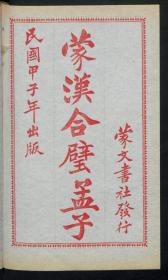 蒙文書社發行
蒙漢合璧孟子
民國甲子年出版